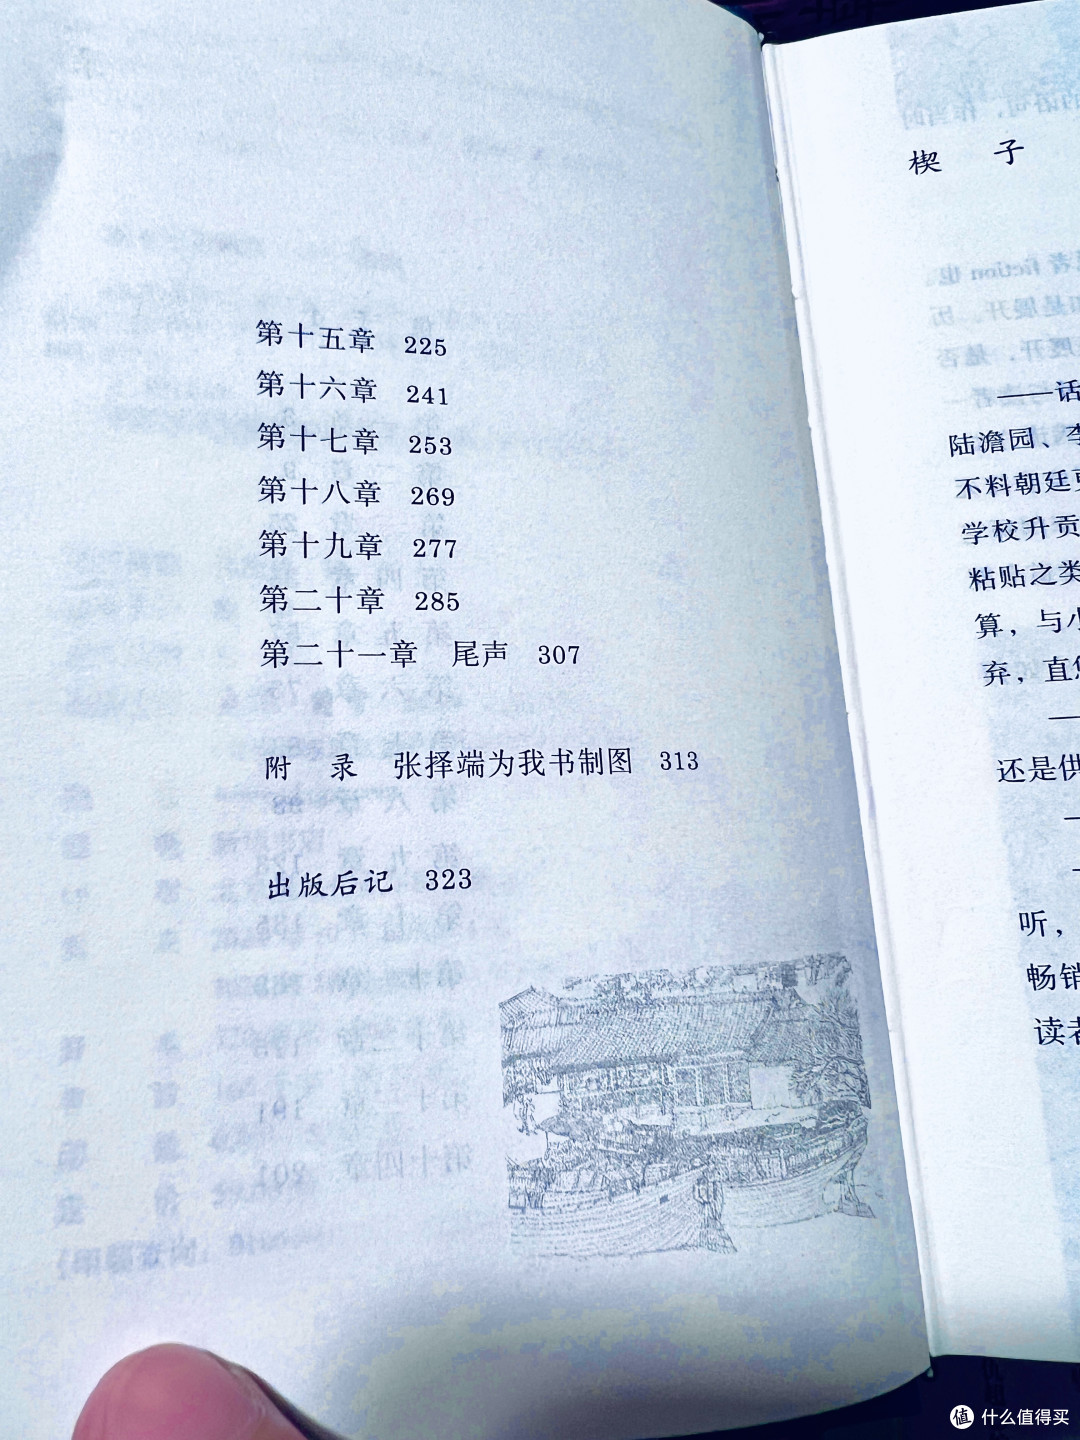 第十五章 225
第十六章 241
第十七章 253
第十八章 269
第十九章 277
第二十章 285
第二十一章 尾声 307
附 录 张择端为我书制图 313
出版后记 323
楔 子
——话
陆澹园、李
不料朝廷
学校升贡
粘贴之类
算，与小
弃，直
还是供
听，
畅销
读者
值 什么值得买